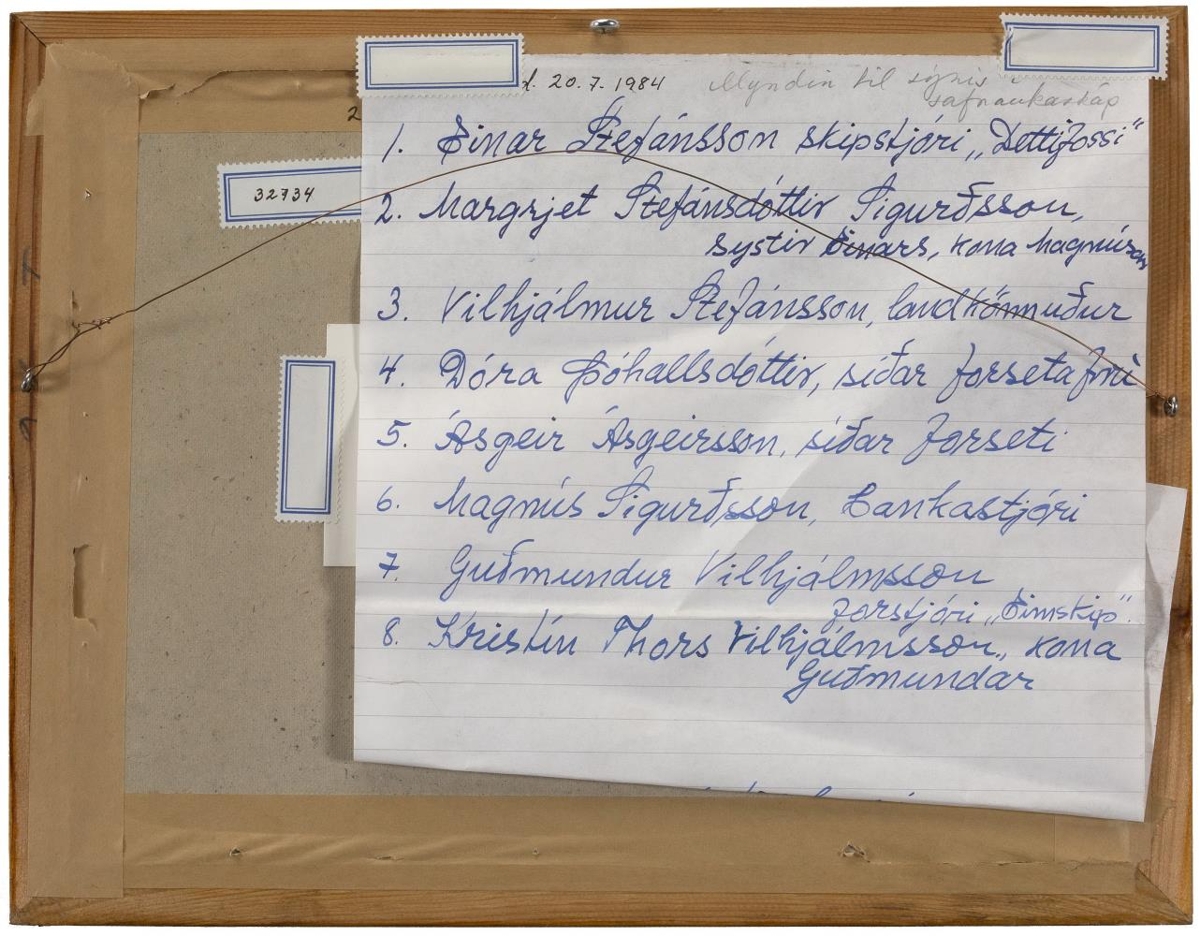 d. 20.7.1984 Myndin til sýnis í
safnaukaskáp
1. Einar Stefánsson skipstjóri „Dettifossi“
32734
2. Margrjet Stefánsdóttir Sigurðsson,
systir Einars, kona Magnúsar
3. Vilhjálmur Stefánsson, landkönnuður
4. Dóra Þóhallsdóttir, síðar forsetafrú
5. Ásgeir Ásgeirsson, síðar forseti
6. Magnús Sigurðsson, bankastjóri
7. Guðmundur Vilhjálmsson
forstjóri „Eimskip“.
8. Kristín Thors Vilhjálmsson, kona
Guðmundar